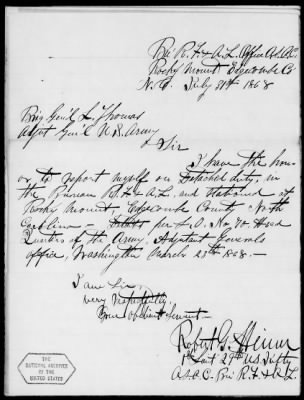 Bu R. F. & A. L. Office A.S.A.C.
Rocky Mount Edgecombe Co
N.C. July 31st 1868
Brig Gen'l L. Thomas
Adjt Gen'l U.S. Army
Sir
I have the hon-
or to report myself on Detached duty, in
the Bureau R. F. & A. L. and Stationed at
Rocky Mount, Edgecombe County North
Carolina - per S.O. No 70. Head
Quarters of the Army, Adjutant Generals
office, Washington March 23rd 1868.-
I am Sir
Very Respectfully
Your obedient Servant -
Robert
1st Lieut 29th U.S. Infty
A.S.A.C. Bu R. F. & A. L.
THE
NATIONAL ARCHIVES
OF THE
UNITED STATES